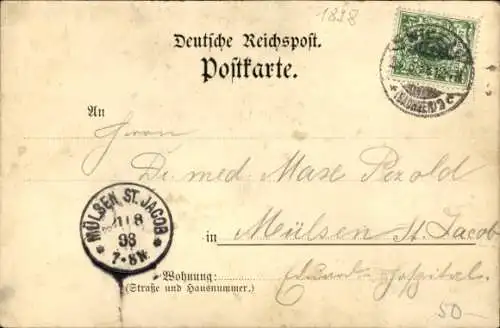 1898
Deutsche Reichspost.
Postkarte.
(SACHSEN)
An Herrn
Dr. med. Max Pezold
in Mülsen St. Jacob
MÜLSEN ST. JACOB
11 8
98
7-8 N.
Wohnung:
(Straße und Hausnummer.)
50-